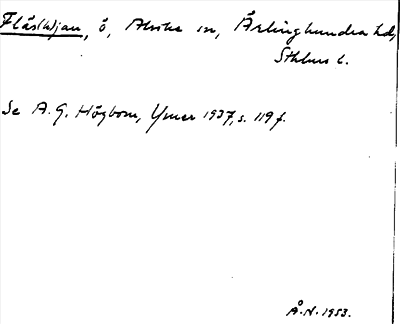 Flås(k)jan, ö, Alsike sn, Ärlinghundra hd,
Sthlms l.
Se A. G. Högbom, Ymer 1937, s. 119 f.
Å.N. 1953.